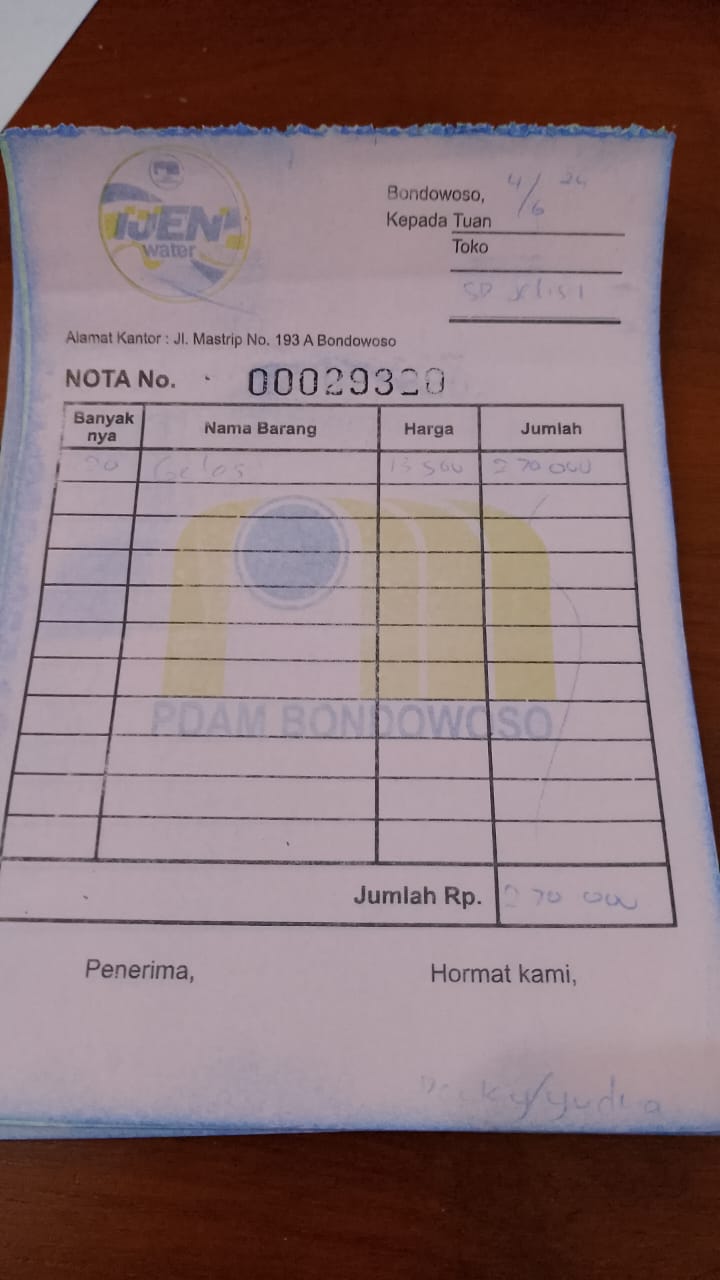 IJEN
water
Bondowoso, 4/6 24
Kepada Tuan
Toko
SD
Alamat Kantor : Jl. Mastrip No. 193 A Bondowoso
NOTA No. 00029320
Banyak nya Nama Barang Harga Jumlah
20 Gelas 13 500 270 000
PDAM BONDOWOSO
Jumlah Rp. 270 000
Penerima, Hormat kami,
/yudha